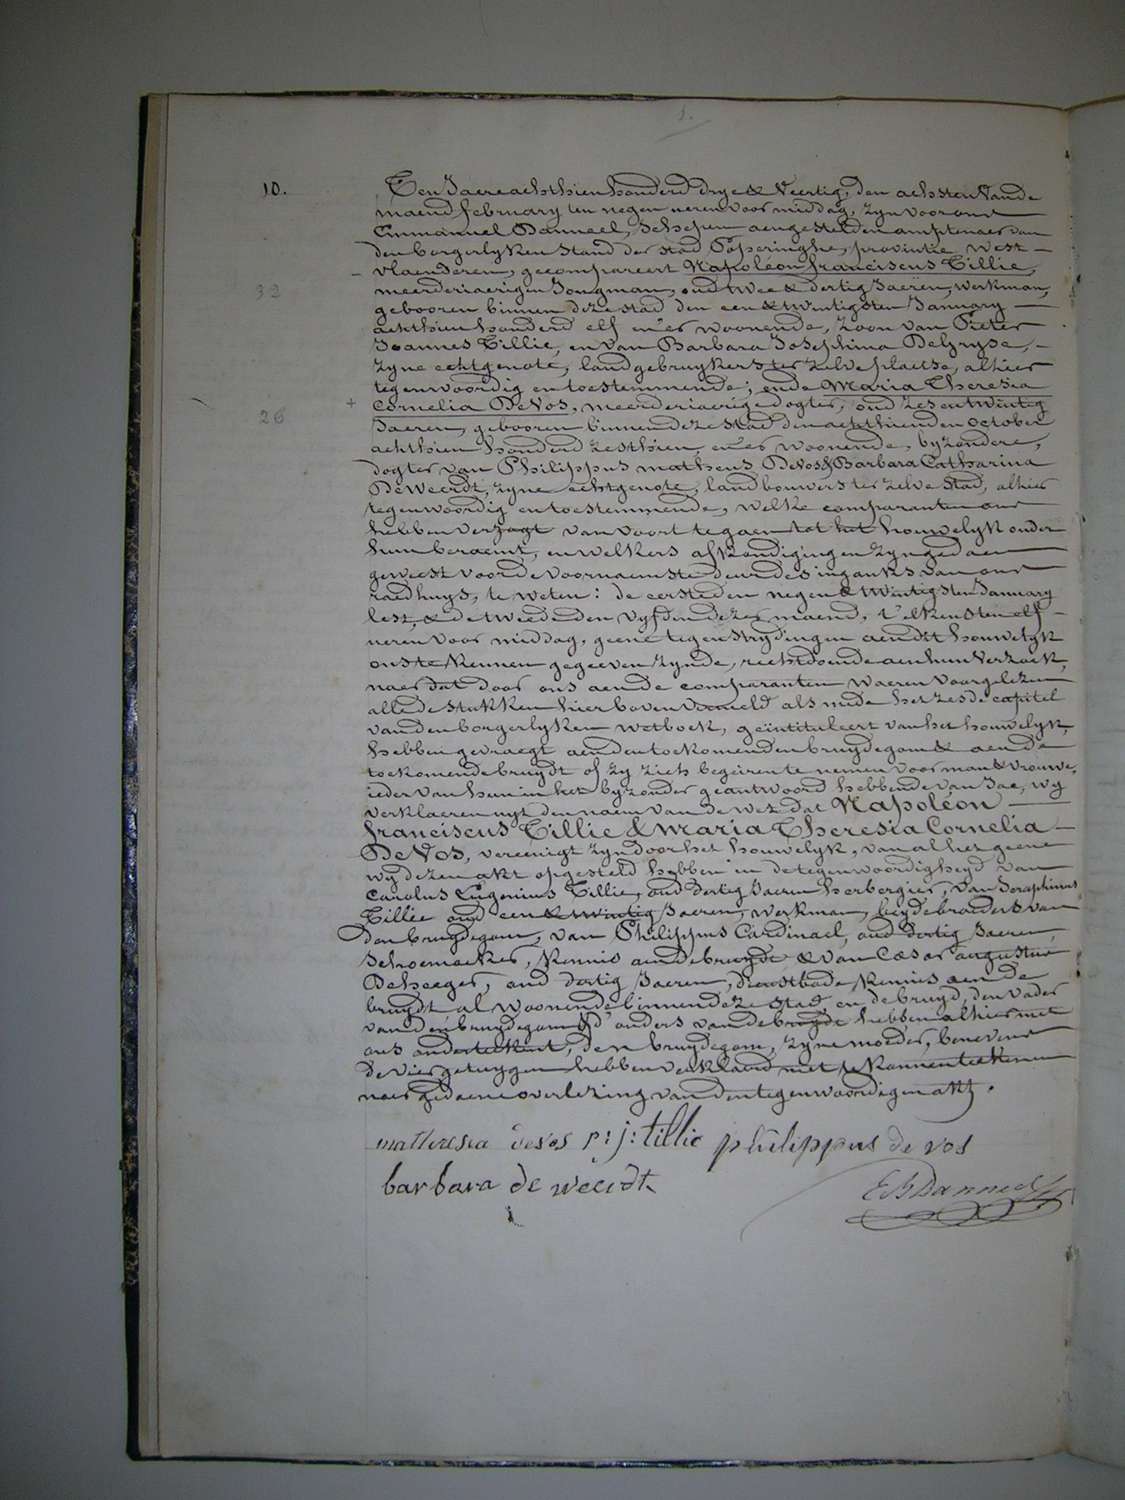 1.
10.
Ten Jaere achthien honderd drye & Veertig, den achsten Van de
maend february ten negen ueren voor middag, zyn voor ons
Emmanuel Danneel, schepen aengestelden amptenaer van
den borgerlyken stand der stad Poperinghe, provintie West-
vlaenderen, gecompareert Napoléon franciscus Tillie,
meerderiaerigen Jongman, oud twee & dertig Jaeren, werkman,
32
gebooren binnen deze stad den een & twintigsten January
achthien honderd elf en er woonende, zoon van Pieter
Joannes Tillie, en van Barbara Josephina Degryse,
zyne echtgenote, landgebruykers ter zelve plaetse, alhier
tegenwoordig en toestemmende; ende Maria Theresia
Cornelia De Vos, meerderiaerige dogter, oud zes en twintig
26
Jaeren, gebooren binnen deze stad den achthienden october
achthien honderd zesthien, en er woonende, byzondere,
dogter van Philippus matheus De Vos & Barbara Catharina
De Weerdt, zyne echtgenote, landbouwers ter zelve stad, alhier
tegenwoordig en toestemmende, welke comparanten ons
hebben verzogt van voort te gaen tot het houwelyk onder
hun beraemt, en welkers afkondigingen zyn gedaen
geweest voor de voornaemste deur des ingangs van ons
raedhuys, te weten: de eerste den negen & twintigsten January
lest, & de tweede den vyfden dezer maend, t'elkens ten elf
ueren voor middag, geene tegenstrydingen aen dit houwelyk
ons te kennen gegeeven zynde, rechtdoende aen hun Verzoek,
naer dat door ons aen de comparanten waeren voorgelezen
alle de stukken hier boven vermeld als mede het zesde capitel
van den borgerlyken wetboek, geïntituleert van het houwelyk,
hebben gevraegt aen den toekomenden bruydegom & aen de
toekomende bruydt of zy zich begeiren te nemen voor man & vrouwe,
ieder van hun in het byzonder geantwoord hebbende van Jae, wy
verklaeren uyt den naem van de wet dat Napoléon
franciscus Tillie & Maria Theresia Cornelia
De Vos, vereenigt zyn door het houwelyk, van al het geene
wy dezen akt opgesteld hebben in de tegenwoordigheyd van
Carolus Eugenius Tillie, oud dertig Jaeren herbergier, van Seraphinus
Tillie oud een & twintig Jaeren, werkman, beyde broeders van
den bruydegom, van Philippus Cardinael, oud dertig Jaeren,
schoemaeker, kennis aen de bruydt & van Cæsar augustus
Deheeger, oud dertig Jaeren, dienstbode kennis aen de
bruydt al woonende binnen deze stad en de bruyd, den vader
van den bruydegom & d'ouders van de bruydt hebben alhier met
ons onderteekent, den bruydegom, zyne moeder, benevens
de vier getuygen hebben verklaerd niet te konnen teekenen
naer gedaene overlezing van den tegenwoordigen akt.
ma theresia devos p: j: tillie philippus de vos
barbara de weerdt
E B Danneel